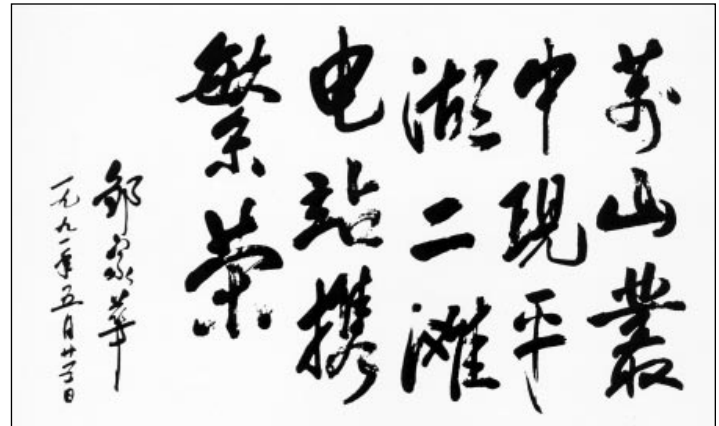 萬山叢
中現平
湖二滩
电站携
繁荣
邹家華
一九九一年五月廿日